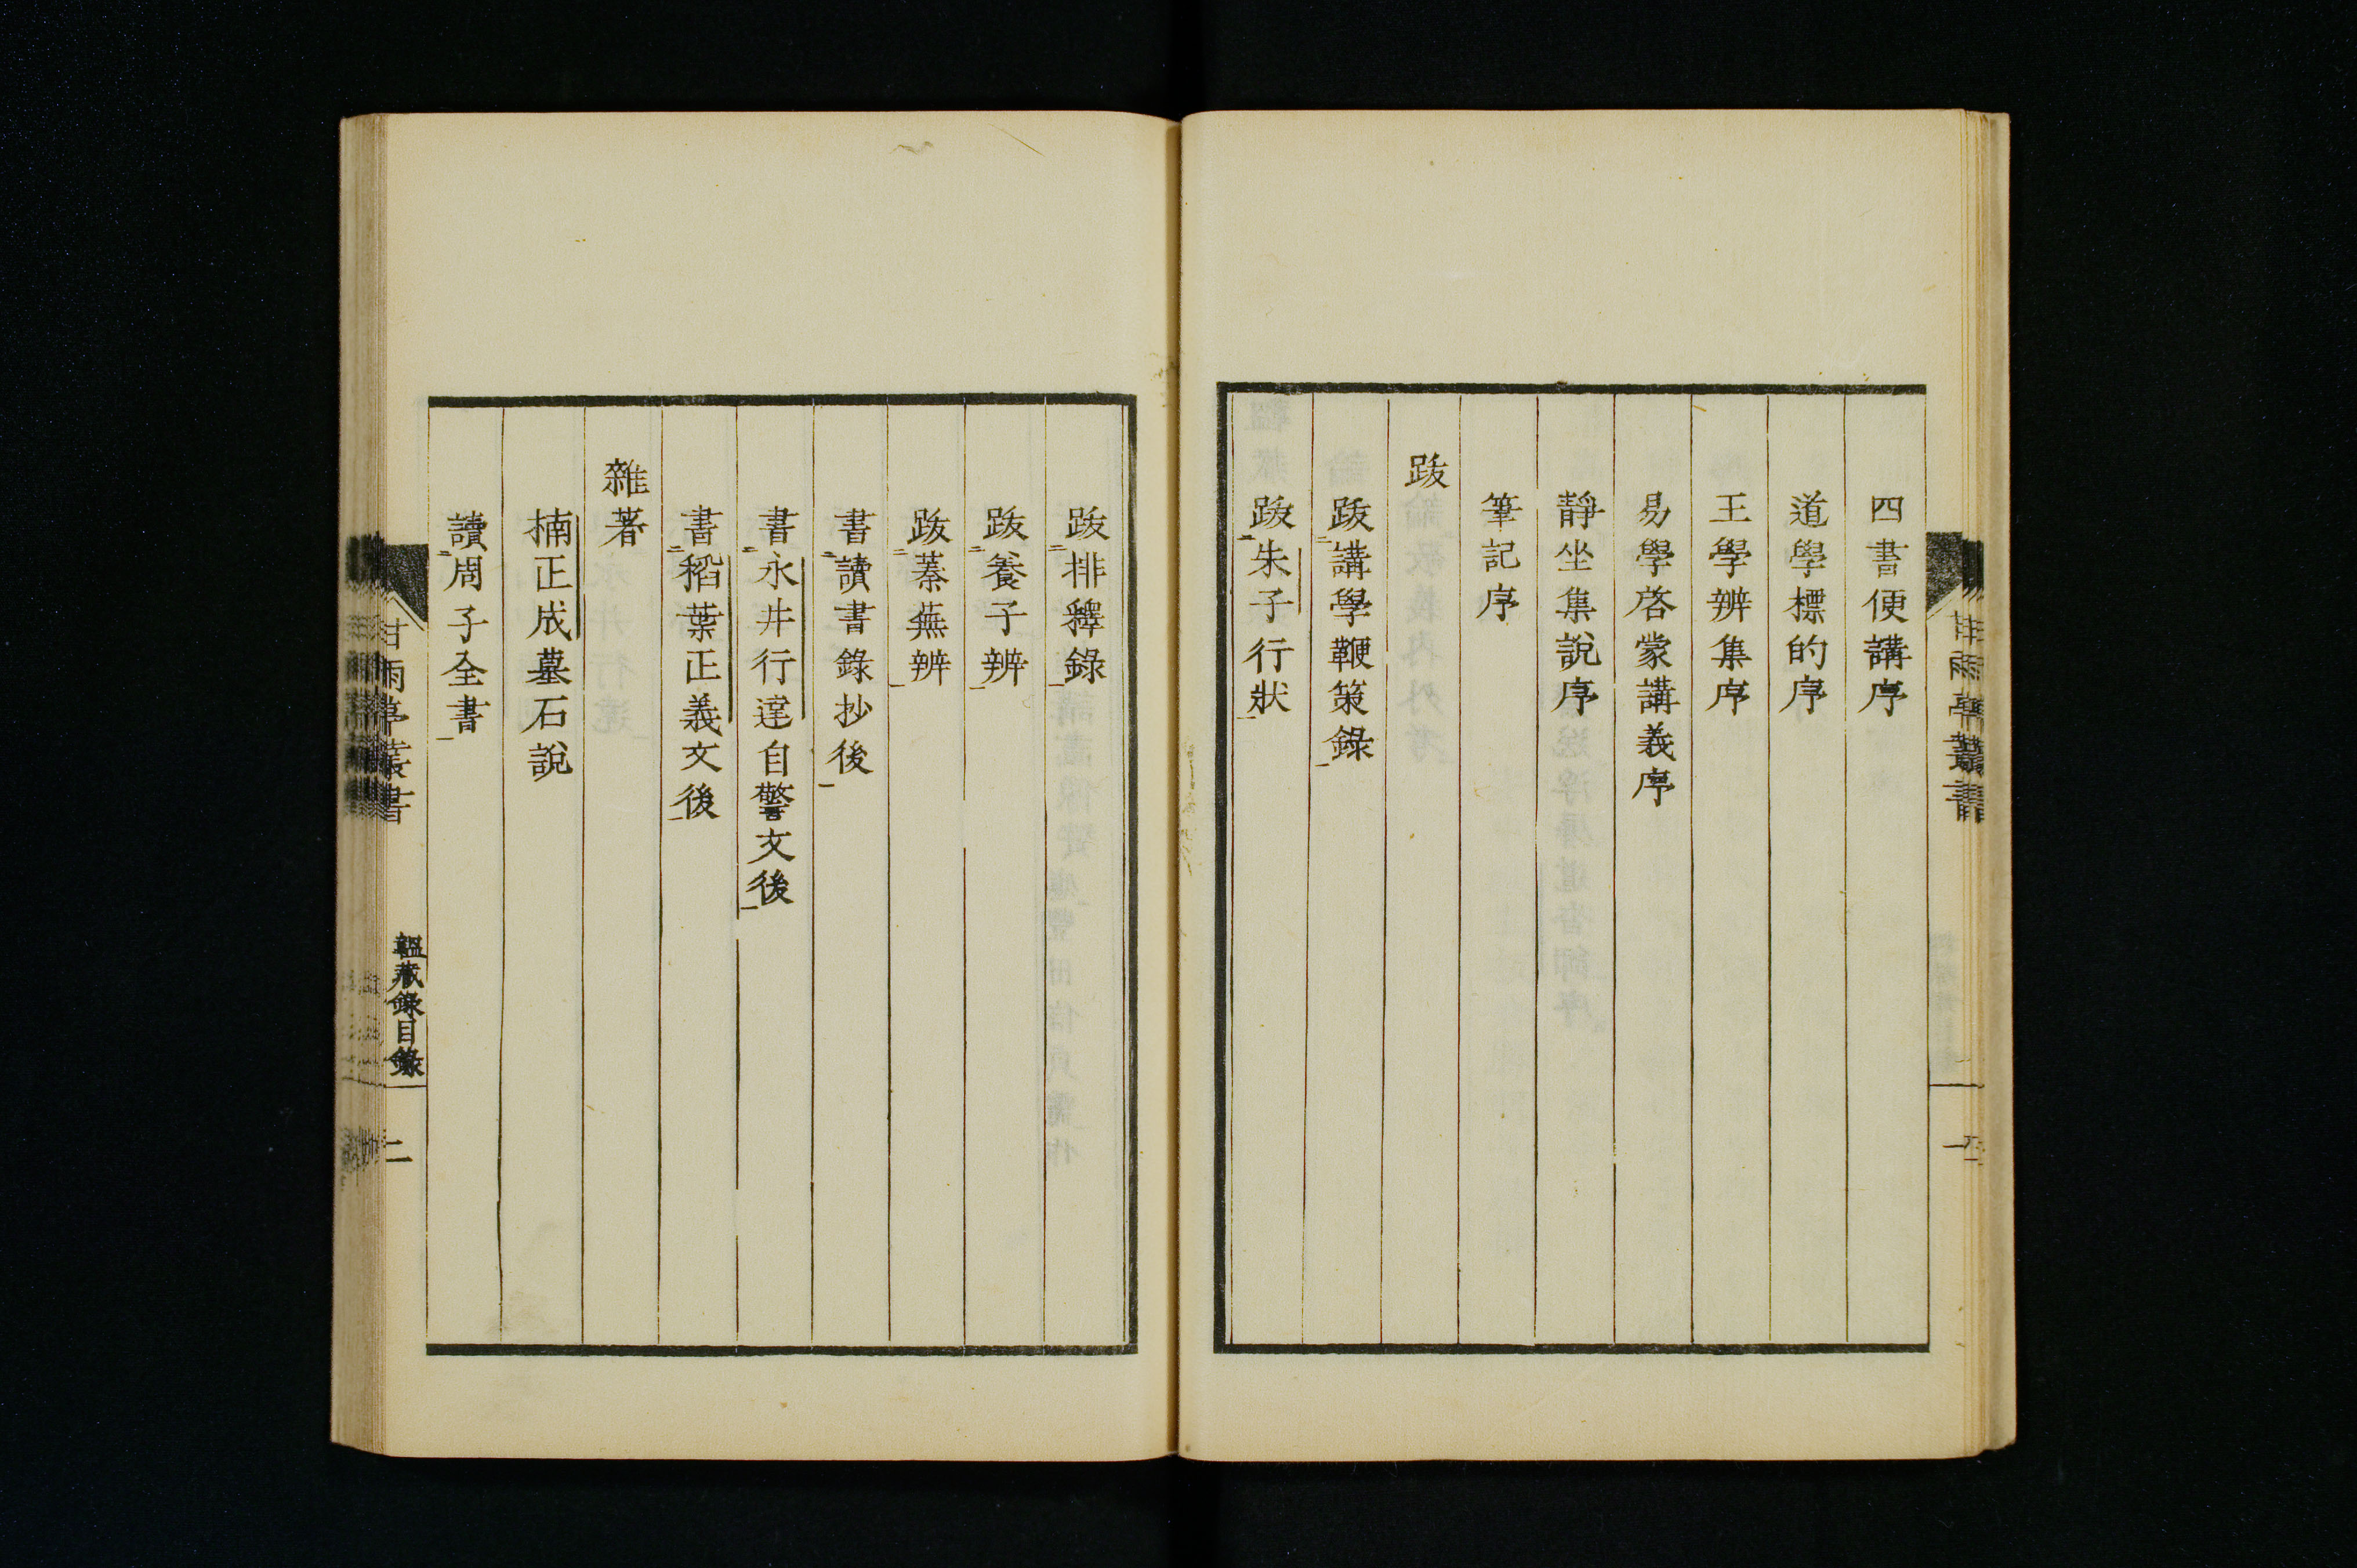 四書便講序
道學標的序
王學辨集序
易學啓蒙講義序
靜坐集說序
筆記序
跋
跋講學鞭策錄
跋朱子行狀
跋排釋錄
跋養子辨
跋蓁蕪辨
書讀書錄抄後
書永井行達自警文後
書稻葉正義文後
雜著
楠正成墓石說
讀周子全書
甘雨亭叢書
韞藏錄目錄
二